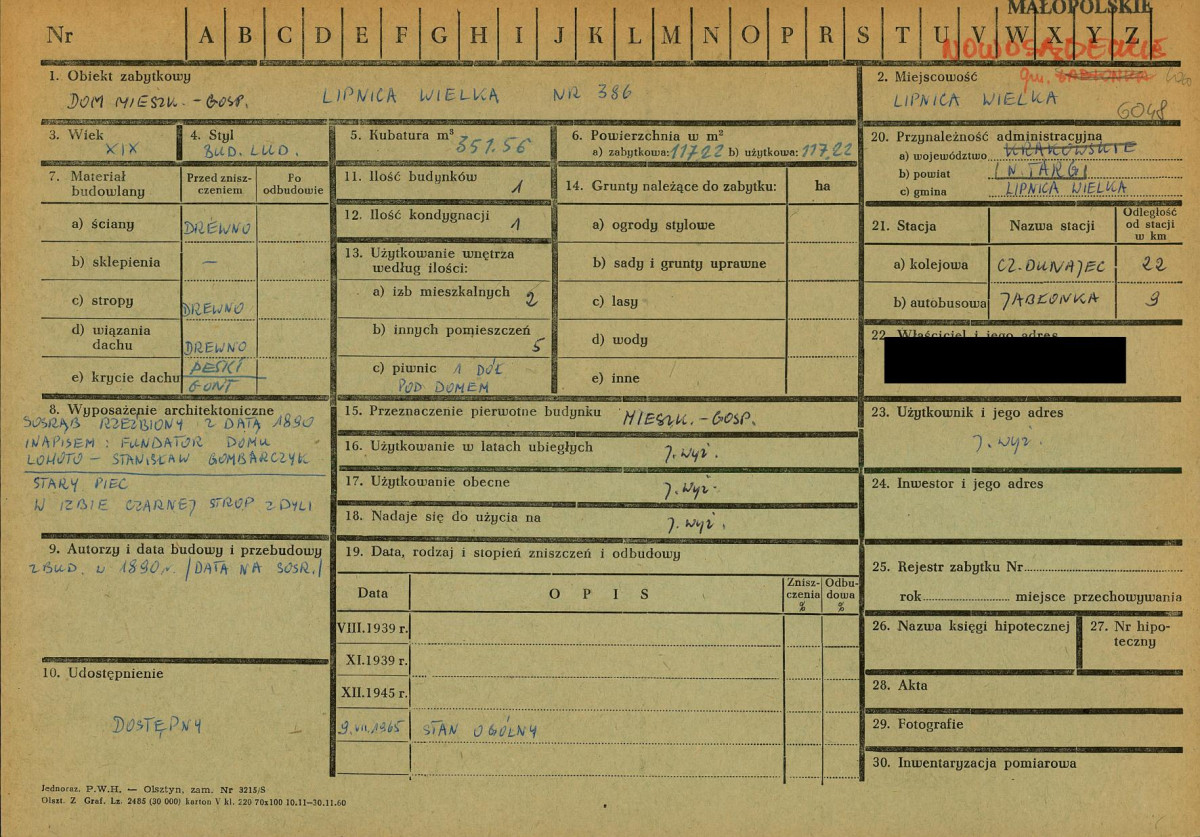 MAŁOPOLSKIE
Nr A B C D E F G H I J K L M N O P R S T U V W X Y Z
NOWOSĄDECKIE
gm. JABŁONKA
1. Obiekt zabytkowy
DOM MIESZK. - GOSP. LIPNICA WIELKA NR 386
2. Miejscowość
LIPNICA WIELKA
6048
3. Wiek
XIX
4. Styl
BUD. LUD.
5. Kubatura m³ 351.56
6. Powierzchnia w m²
a) zabytkowa: 117,22 b) użytkowa: 117,22
20. Przynależność administracyjna
a) województwo KRAKOWSKIE
b) powiat N. TARG
c) gmina LIPNICA WIELKA
7. Materiał budowlany
Przed zniszczeniem
Po odbudowie
a) ściany DREWNO
b) sklepienia —
c) stropy DREWNO
d) wiązania dachu DREWNO
e) krycie dachu DESKI
GONT
11. Ilość budynków 1
12. Ilość kondygnacji 1
13. Użytkowanie wnętrza
według ilości:
a) izb mieszkalnych 2
b) innych pomieszczeń 5
c) piwnic 1 DÓŁ
POD DOMEM
14. Grunty należące do zabytku: ha
a) ogrody stylowe
b) sady i grunty uprawne
c) lasy
d) wody
e) inne
21. Stacja Nazwa stacji Odległość od stacji w km
a) kolejowa CZ. DUNAJEC 22
b) autobusowa JABŁONKA 9
22. Właściciel i jego adres
8. Wyposażenie architektoniczne
SOSRĄB RZEŹBIONY Z DATĄ 1890
I NAPISEM: FUNDATOR DOMU
LOHOTO - STANISŁAW GOMBARCZYK
STARY PIEC
W IZBIE CZARNEJ STROP Z DYLI
15. Przeznaczenie pierwotne budynku MIESZK. - GOSP.
16. Użytkowanie w latach ubiegłych J. wyż.
17. Użytkowanie obecne J. wyż.
18. Nadaje się do użycia na J. wyż.
23. Użytkownik i jego adres
J. wyż.
24. Inwestor i jego adres
9. Autorzy i data budowy i przebudowy
ZBUD. W 1890 r. /DATA NA SOSR./
10. Udostępnienie
DOSTĘPNY
19. Data, rodzaj i stopień zniszczeń i odbudowy
Data OPIS Zniszczenia % Odbudowa %
VIII.1939 r.
XI.1939 r.
XII.1945 r.
9.VII.1965 STAN OGÓLNY
25. Rejestr zabytku Nr
rok miejsce przechowywania
26. Nazwa księgi hipotecznej
27. Nr hipoteczny
28. Akta
29. Fotografie
30. Inwentaryzacja pomiarowa
Jednoraz. P.W.H. — Olsztyn, zam. Nr 3215/S
Olszt. Z Graf. Lz. 2485 (30 000) karton V kl. 220 70x100 10.11—30.11.60